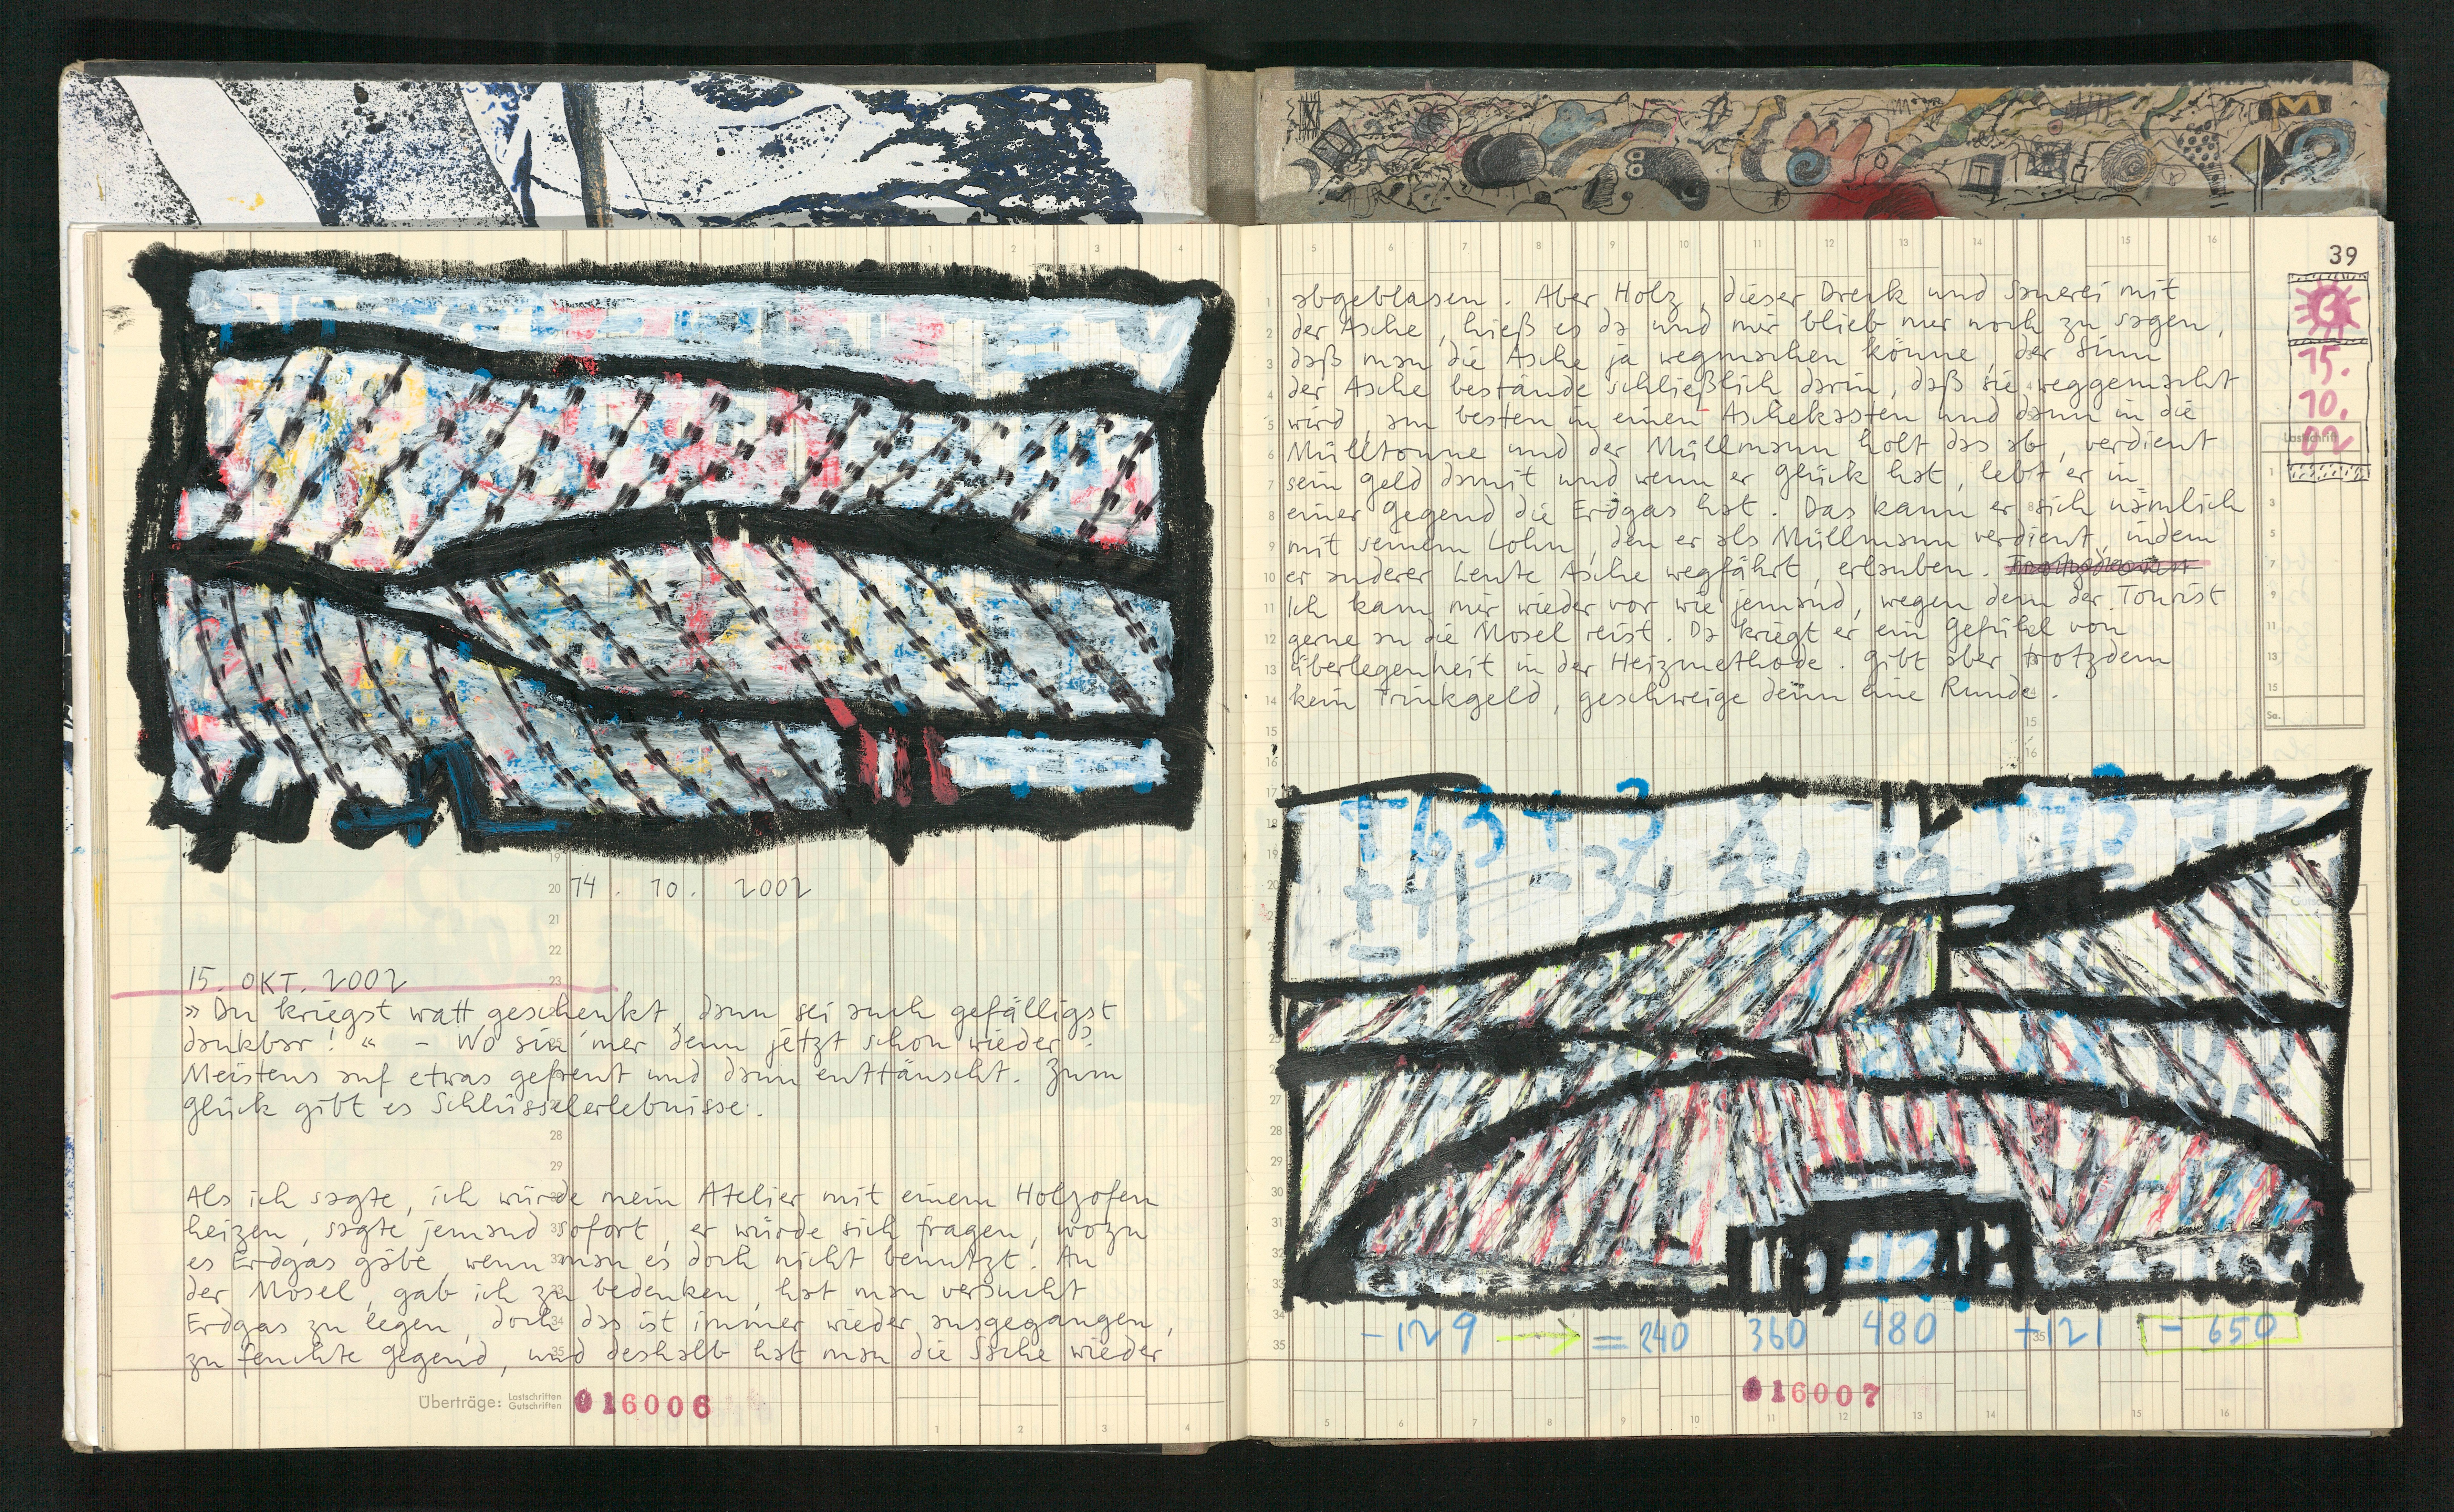 14. 10. 2002
15. OKT. 2002
»Du kriegst watt geschenkt, dann sei auch gefälligst
dankbar!“ – Wo sin' mer denn jetzt schon wieder?
Meistens auf etwas gefreut und dann enttäuscht. Zum
Glück gibt es Schlüsselerlebnisse.
Als ich sagte, ich würde mein Atelier mit einem Holzofen
heizen, sagte jemand sofort, er würde sich fragen, wozu
es Erdgas gäbe, wenn man es doch nicht benutzt. An
der Mosel, gab ich zu bedenken, hat man versucht
Erdgas zu legen, doch das ist immer wieder ausgegangen,
zu feuchte Gegend, und deshalb hat man die Sache wieder
Überträge: Lastschriften
Gutschriften
016006
39
abgeblasen. Aber Holz, dieser Dreck und Sauerei mit
der Asche, hieß es da und mir blieb nur noch zu sagen,
daß man die Asche ja wegmachen könne, der Sinn
der Asche bestände schließlich darin, daß sie weggemacht
wird, am besten in einen Aschekasten und dann in die
Mülltonne und der Müllmann holt das ab, verdient
sein Geld damit und wenn er Glück hat, lebt er in
einer Gegend die Erdgas hat. Das kann er sich nämlich
mit seinem Lohn, den er als Müllmann verdient, indem
er anderer Leute Asche wegfährt, erlauben.
Ich kam mir wieder vor wie jemand, wegen dem der Tourist
gerne an die Mosel reist. Da kriegt er ein Gefühl von
Überlegenheit in der Heizmethode. Gibt aber trotzdem
kein Trinkgeld, geschweige denn eine Runde.
15.
10.
02
Lastschrift
Sa.
-129 → = 240 360 480 +121 = 650
016007